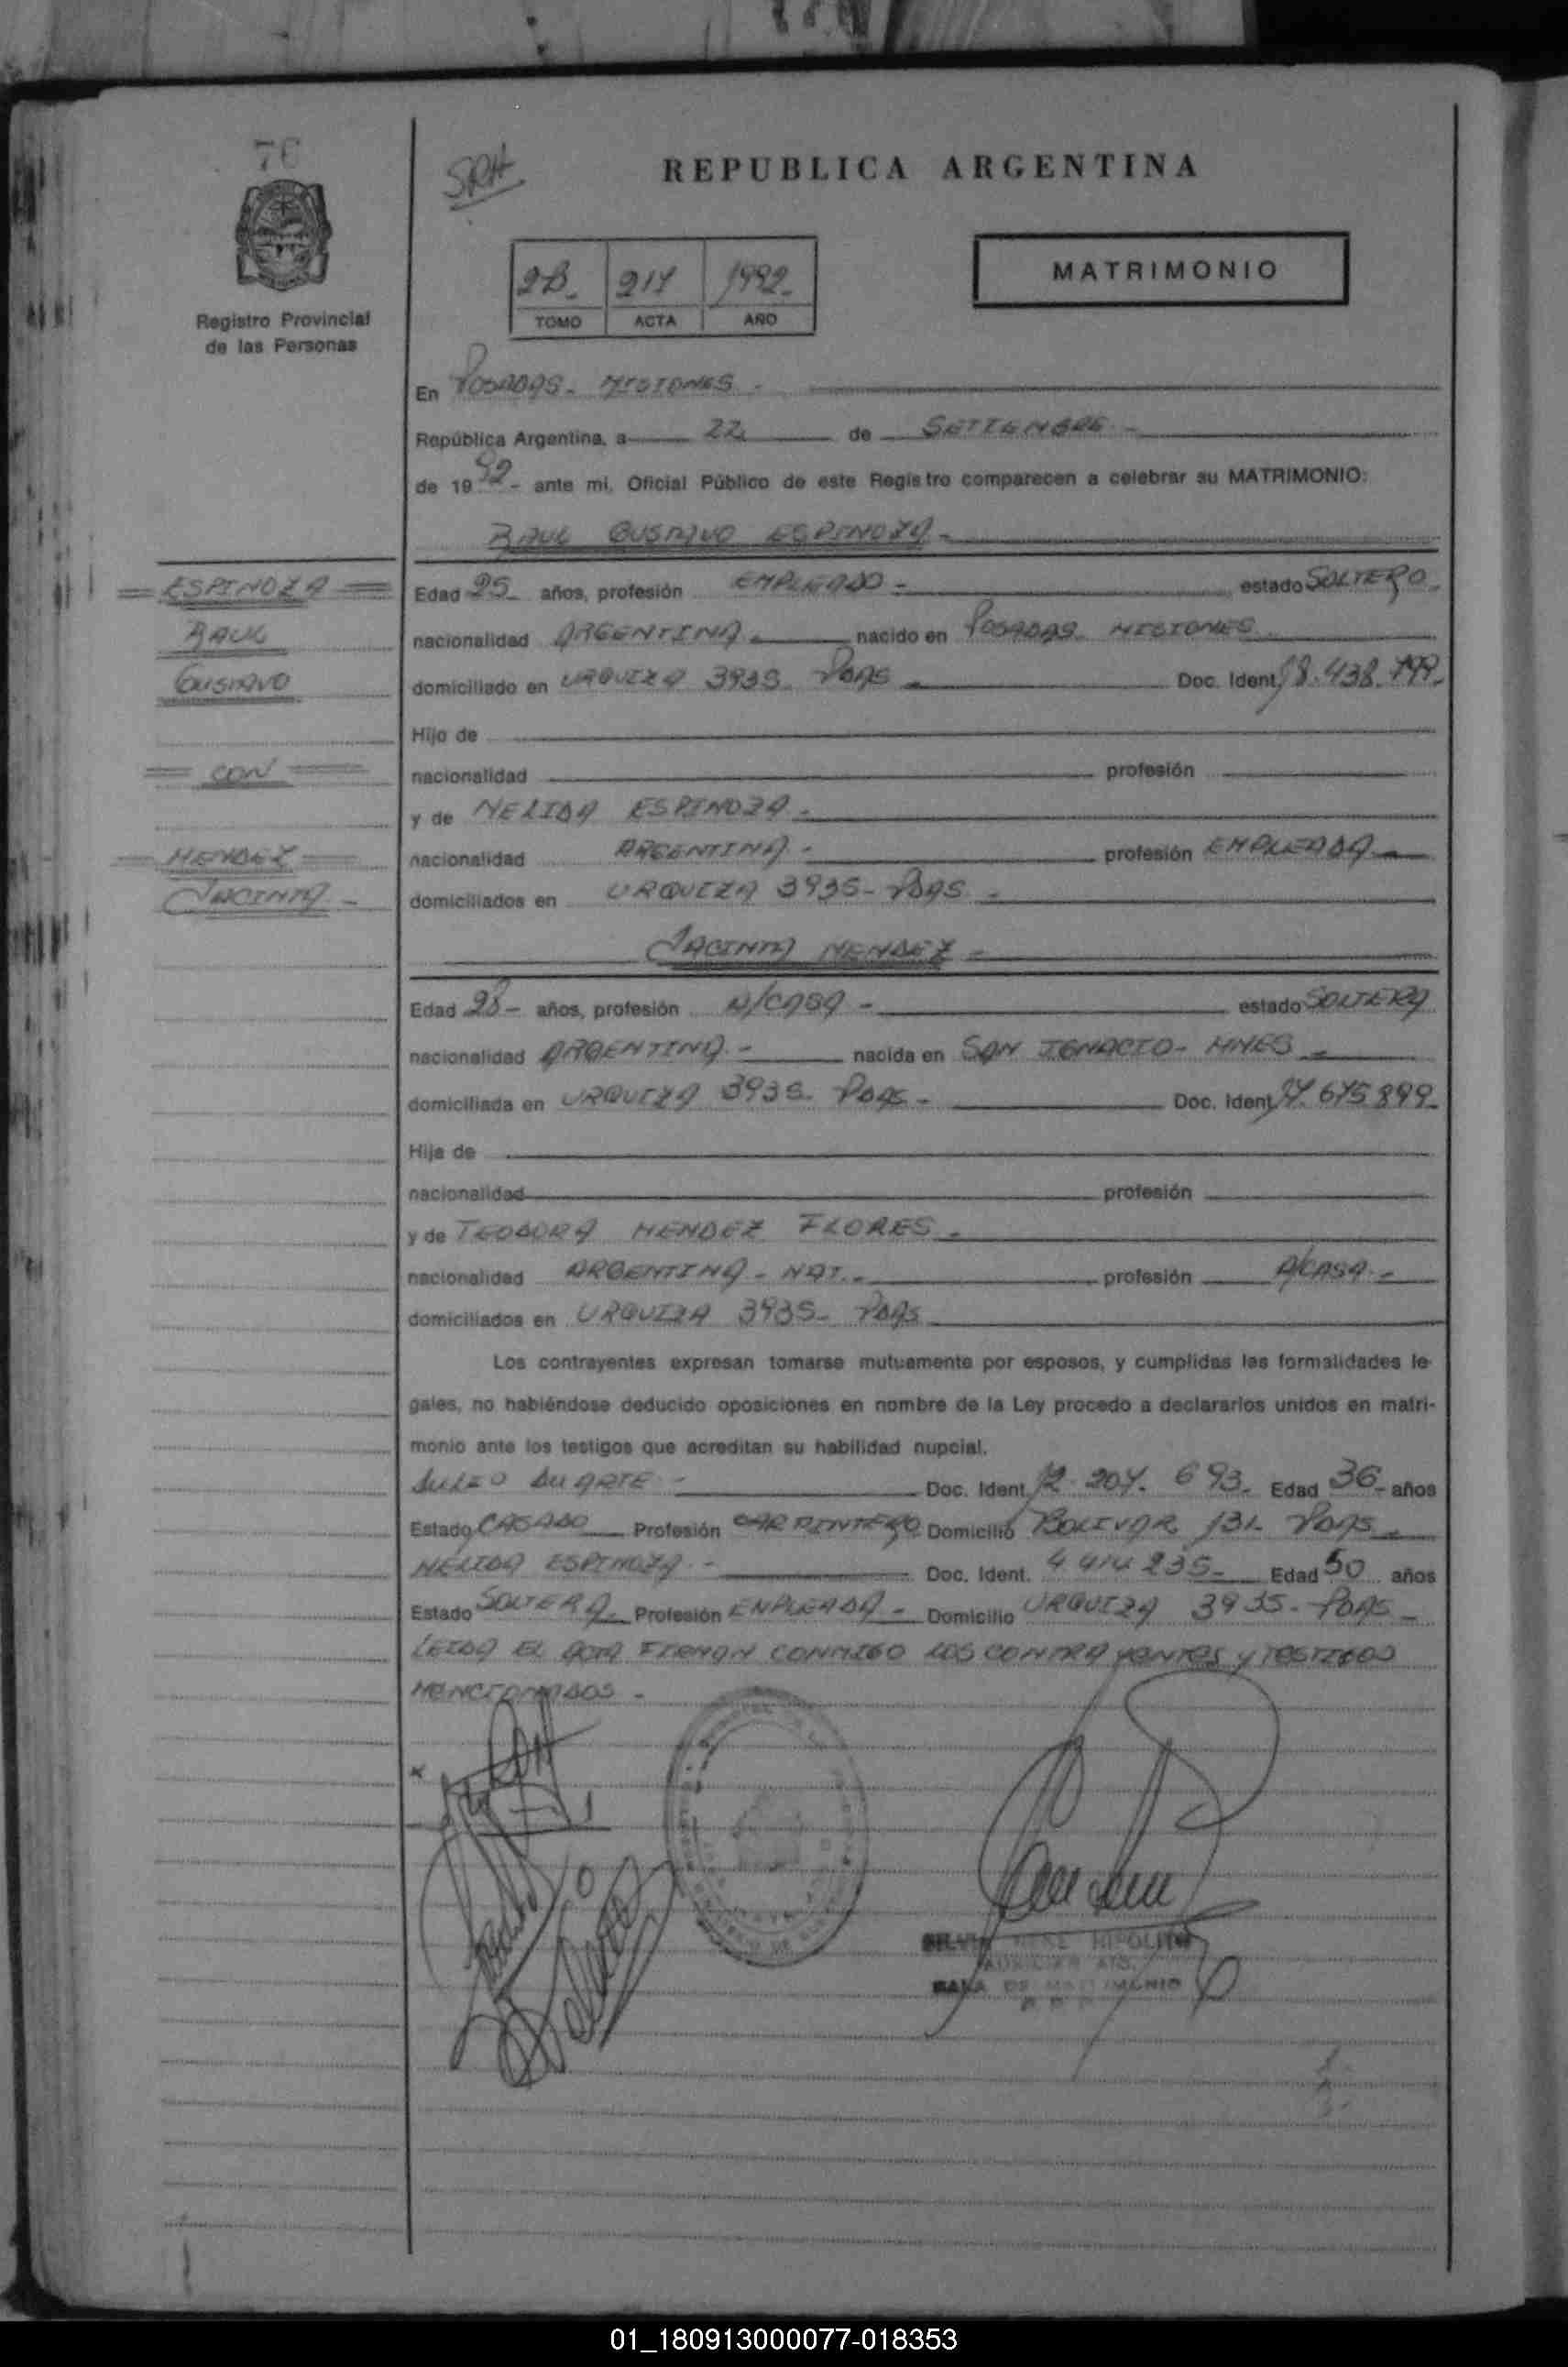 76
SRH
REPUBLICA ARGENTINA
MATRIMONIO
2B 217 1992
TOMO ACTA AÑO
Registro Provincial
de las Personas
En POSADAS - MISIONES -
República Argentina, a 22 de SETIEMBRE -
de 1992 - ante mi, Oficial Público de este Registro comparecen a celebrar su MATRIMONIO:
RAUL GUSTAVO ESPINOZA -
ESPINOZA
RAUL
GUSTAVO
CON
MENDEZ
JACINTA -
Edad 25 años, profesión EMPLEADO - estado SOLTERO -
nacionalidad ARGENTINA - nacido en POSADAS MISIONES
domiciliado en URQUIZA 3935 PDAS - Doc. Ident. 18.438.799 -
Hijo de
nacionalidad profesión
y de NELIDA ESPINOZA -
nacionalidad ARGENTINA - profesión EMPLEADA -
domiciliados en URQUIZA 3935 - PDAS -
JACINTA MENDEZ -
Edad 28 - años, profesión A/CASA - estado SOLTERA
nacionalidad ARGENTINA - nacida en SAN IGNACIO - MNES -
domiciliada en URQUIZA 3935 - PDAS - Doc. Ident. 17.675.899 -
Hija de
nacionalidad profesión
y de TEODORA MENDEZ FLORES -
nacionalidad ARGENTINA - NAT. - profesión A/CASA -
domiciliados en URQUIZA 3935 - PDAS
Los contrayentes expresan tomarse mutuamente por esposos, y cumplidas las formalidades le-
gales, no habiéndose deducido oposiciones en nombre de la Ley procedo a declararlos unidos en matri-
monio ante los testigos que acreditan su habilidad nupcial.
DUARTE - Doc. Ident. 12.207.693 - Edad 36 - años
Estado CASADO Profesión CARPINTERO Domicilio BOLIVAR 131 - PDAS -
NELIDA ESPINOZA - Doc. Ident. 4 414 235 - Edad 50 años
Estado SOLTERA - Profesión EMPLEADA - Domicilio URQUIZA 3935 - PDAS -
LEIDA EL ACTA FIRMAN CONMIGO LOS CONTRAYENTES y TESTIGOS
MENCIONADOS -
SILVIA HIPOLITO
AUXILIAR
SALA DE MATRIMONIO
01_180913000077-018353